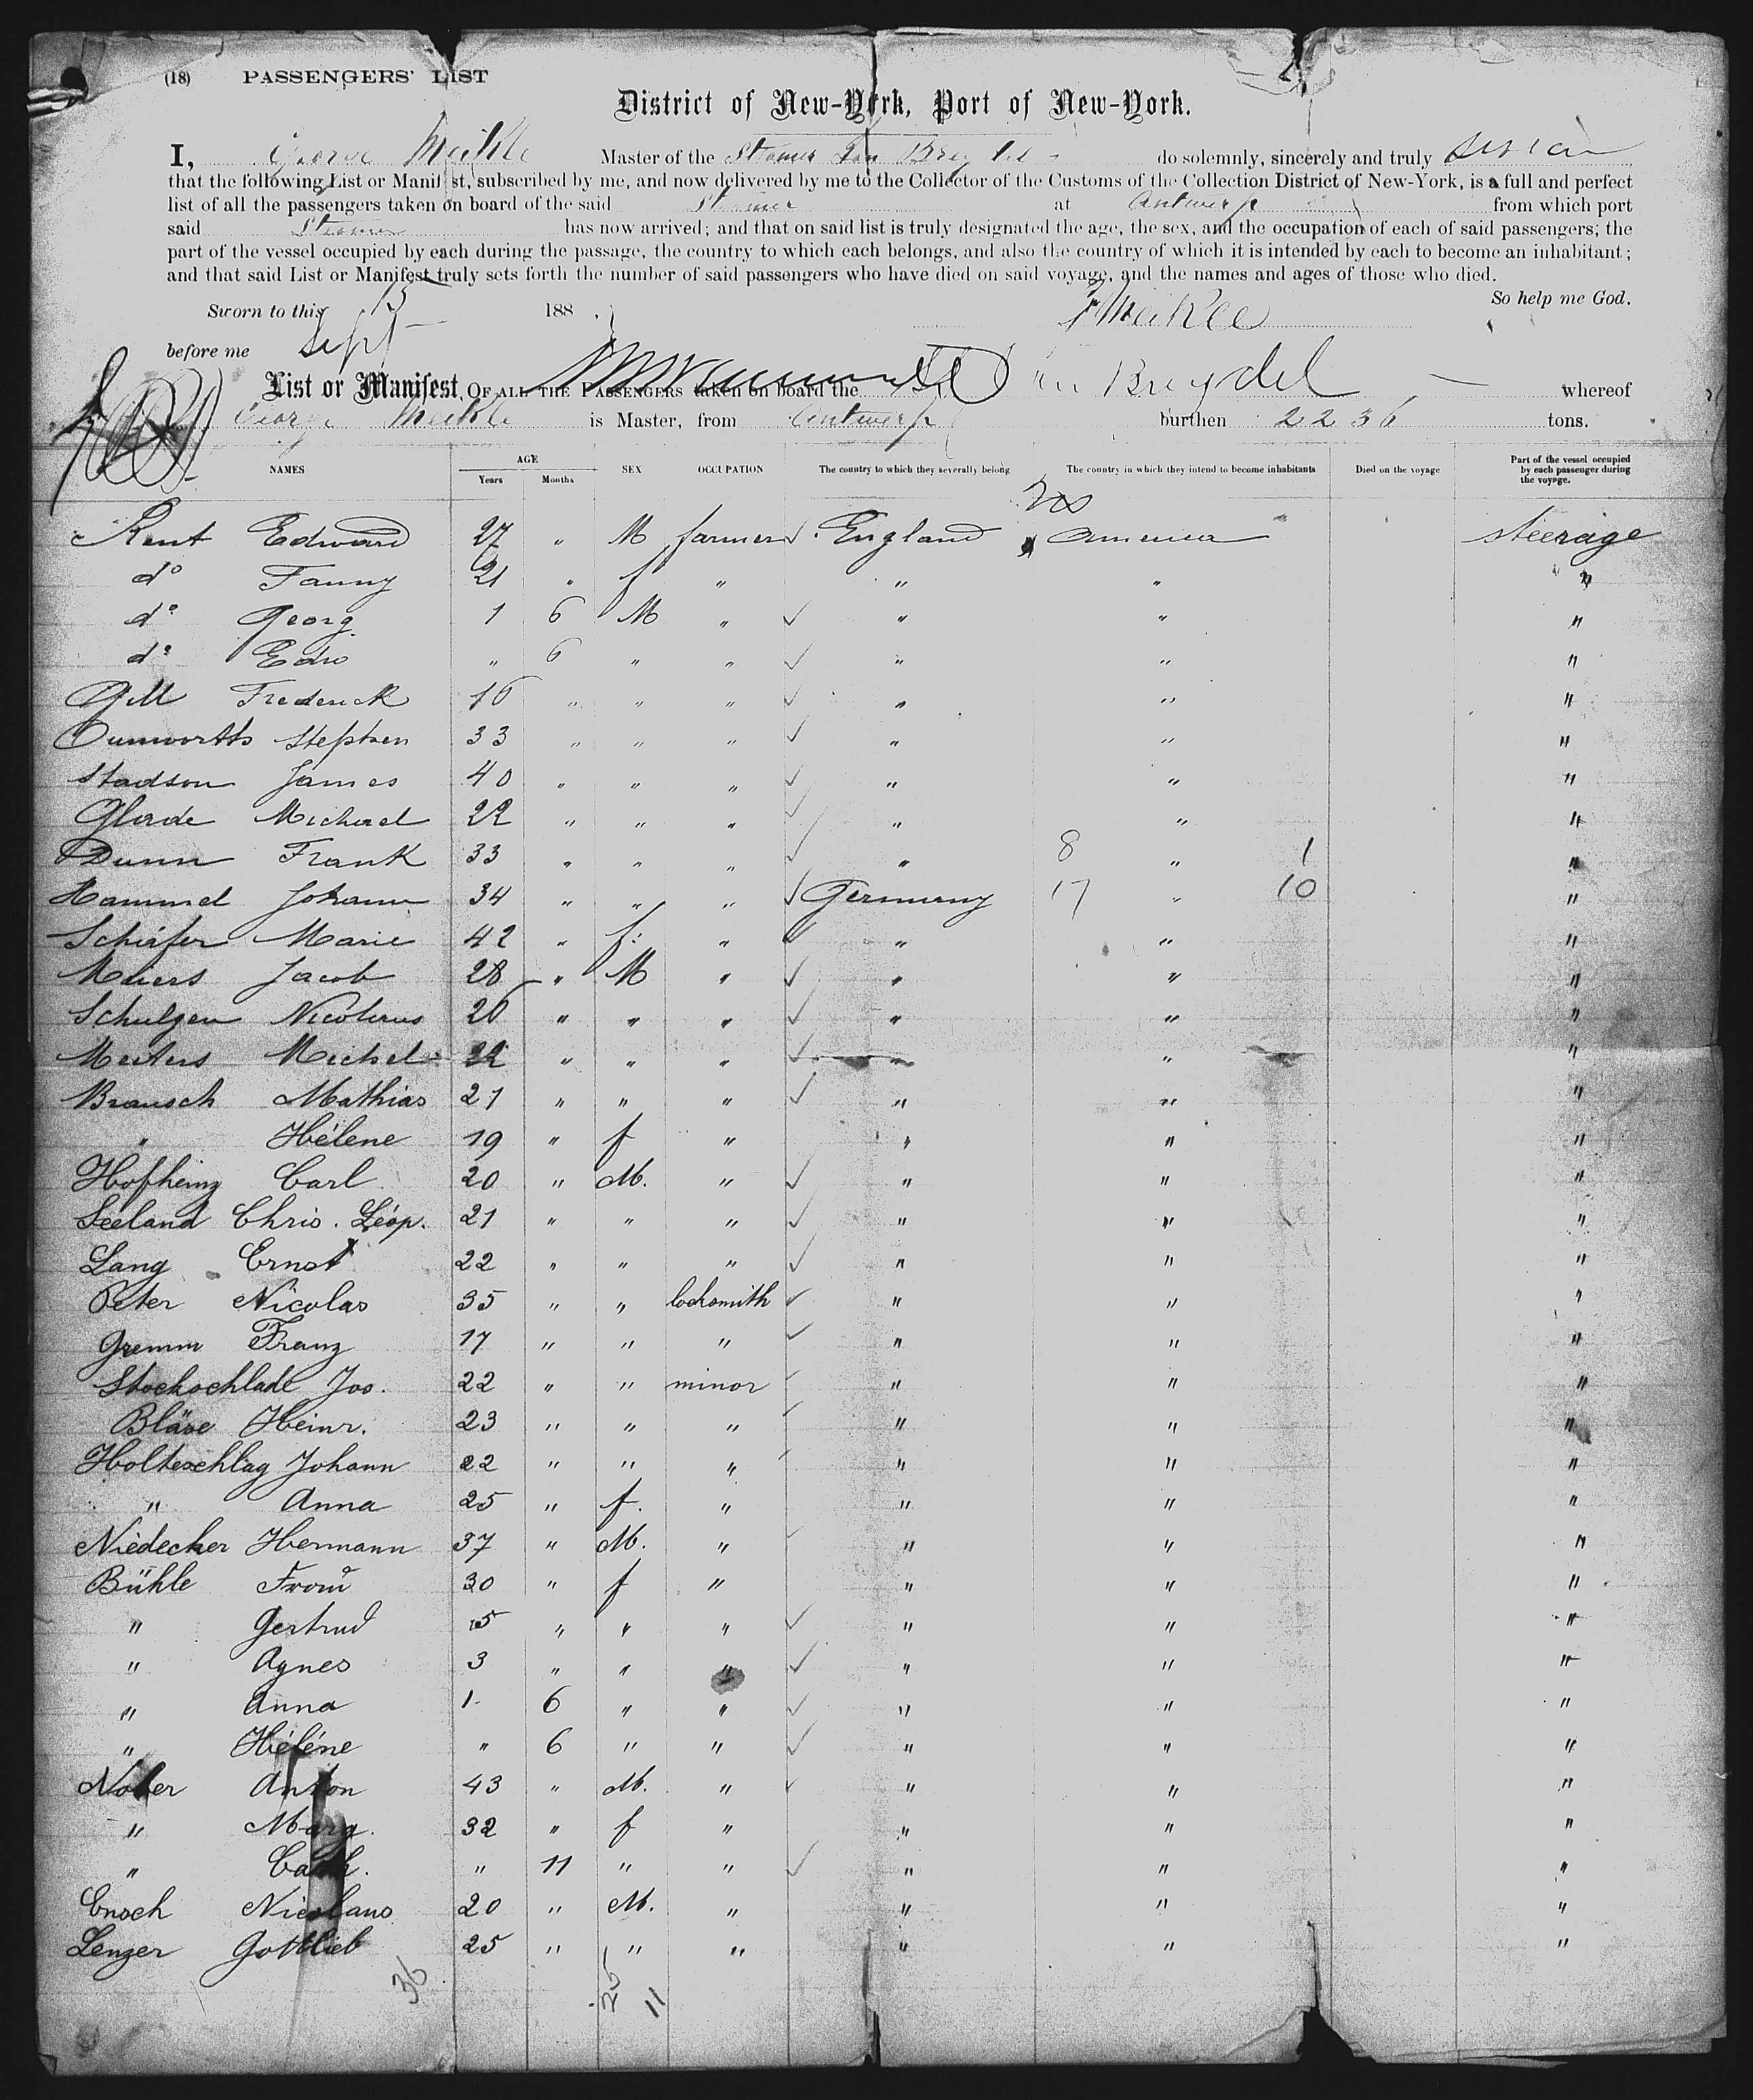 (18) PASSENGERS' LIST
District of New-York, Port of New-York.
I, George Meikle Master of the Steamer Jan Breydel do solemnly, sincerely and truly swear
that the following List or Manifest, subscribed by me, and now delivered by me to the Collector of the Customs of the Collection District of New-York, is a full and perfect
list of all the passengers taken on board of the said Steamer at Antwerp from which port
said Steamer has now arrived; and that on said list is truly designated the age, the sex, and the occupation of each of said passengers; the
part of the vessel occupied by each during the passage, the country to which each belongs, and also the country of which it is intended by each to become an inhabitant;
and that said List or Manifest truly sets forth the number of said passengers who have died on said voyage, and the names and ages of those who died.
So help me God.
Sworn to this 15 188 . Meikle
before me Sept
List or Manifest, OF ALL THE PASSENGERS taken on board the Jan Breydel whereof
George Meikle is Master, from Antwerp burthen 2236 tons.
NAMES AGE Years Months SEX OCCUPATION The country to which they severally belong The country in which they intend to become inhabitants Died on the voyage Part of the vessel occupied by each passenger during the voyage.
Kent Edward 27 " M farmer England America steerage
do Fanny 21 " f " " " "
do Georg 1 6 M " " " "
do Edw " 6 " " " " "
Gill Frederick 16 " " " " " "
Dunworth Stephen 33 " " " " " "
Stadson James 40 " " " " " "
Glade Michael 22 " " " " " "
Dunn Frank 33 " " " " 8 " 1 "
Hammel Johann 34 " " " Germany 17 " 10 "
Schäfer Marie 42 " f. " " " "
Meiers Jacob 28 " M " " " "
Schulgen Nicolaus 26 " " " " " "
Michel 32 " " " " " "
Brausch Mathias 21 " " " " " "
" Hélene 19 " f " " " "
Hofheinz Carl 20 " M. " " " "
Seeland Chris. Léop. 21 " " " " " "
Lang Ernst 22 " " " " " "
Peter Nicolas 35 " " locksmith " " "
Gremm Franz 17 " " " " " "
Stockschlade Jos. 22 " " minor " " "
Bläse Heinr. 23 " " " " " "
Holteschlag Johann 22 " " " " " "
" Anna 25 " f. " " " "
Niedecker Hermann 37 " M. " " " "
Bühle 30 " f " " " "
" Gertrud 5 " " " " " "
" Agnes 3 " " " " " "
" Anna 1 6 " " " " "
" Héléne " 6 " " " " "
Nober Anton 43 " M. " " " "
" Marg. 32 " f " " " "
" Cath. " 11 " " " " "
Enoch Nicolaus 20 " M. " " " "
Lenzer Gottlieb 25 " " " " " "
36 25 11